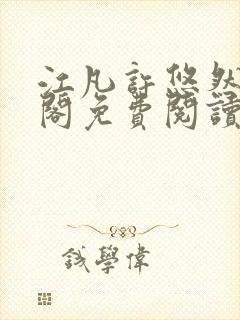 江凡許悠然
閣免費閱讀
錢學偉